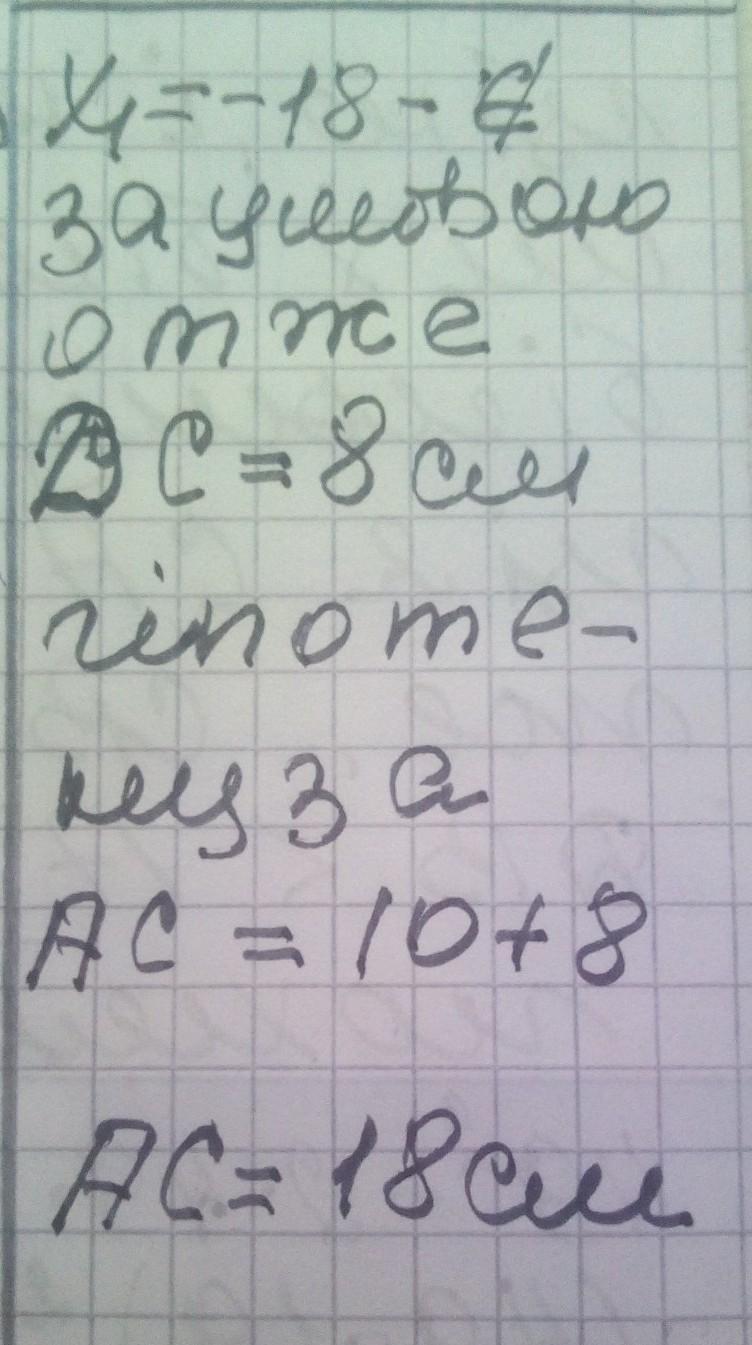 X₁ = -18 - ∉
за умовою
отже
DC = 8 см
гіпоте-
нуза
AC = 10 + 8
AC = 18 см